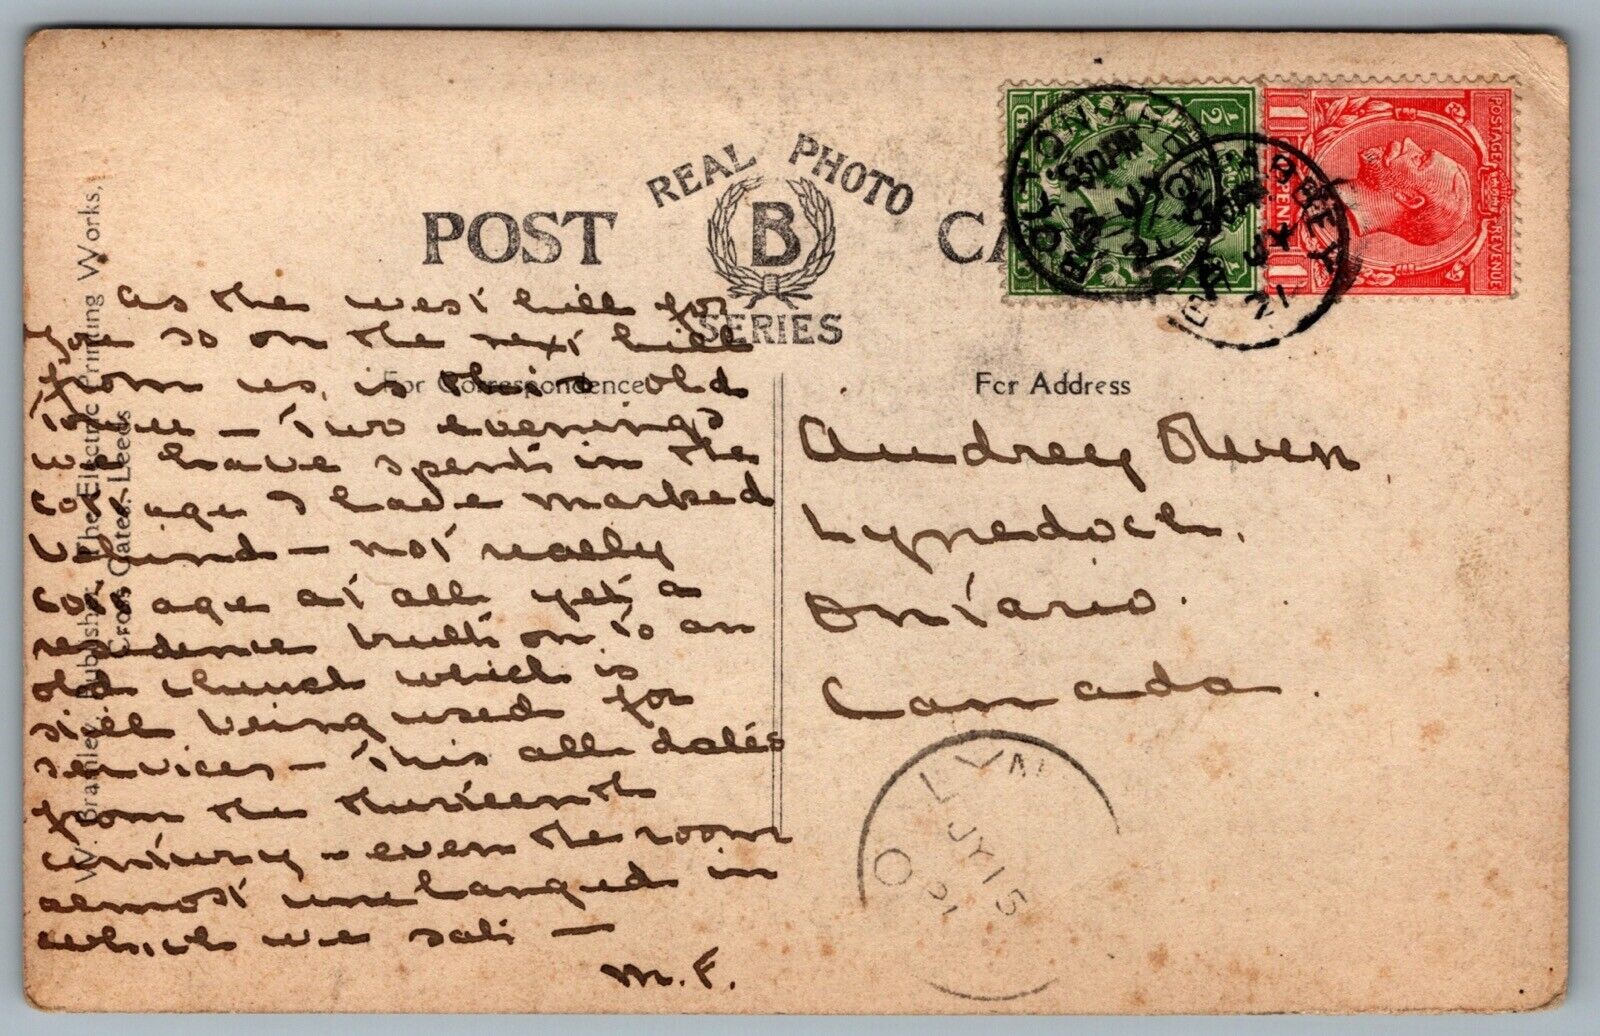 REAL PHOTO
POST CA
B
SERIES
For Correspondence
For Address
as the west hill for
you so on the next hill
from us, is this old
— Two evenings
we have spent in the
cottage I have marked
behind — not really
cottage at all yet a
residence built on to an
old church which is
still being used for
services — This all dates
from the thirteenth
century — even the room
almost unchanged in
which we sat —
M. F.
Audrey Owen,
Lynedoch,
Ontario.
Canada.
W. Bramley, Publisher, The Electric Printing Works,
Cross Gates, Leeds
BOLTON ABBEY
5 30 PM
JY
21
BOLTON ABBEY
JY
21
½
½
POSTAGE REVENUE
1 PENNY 1
LYN
JY 15
21
O